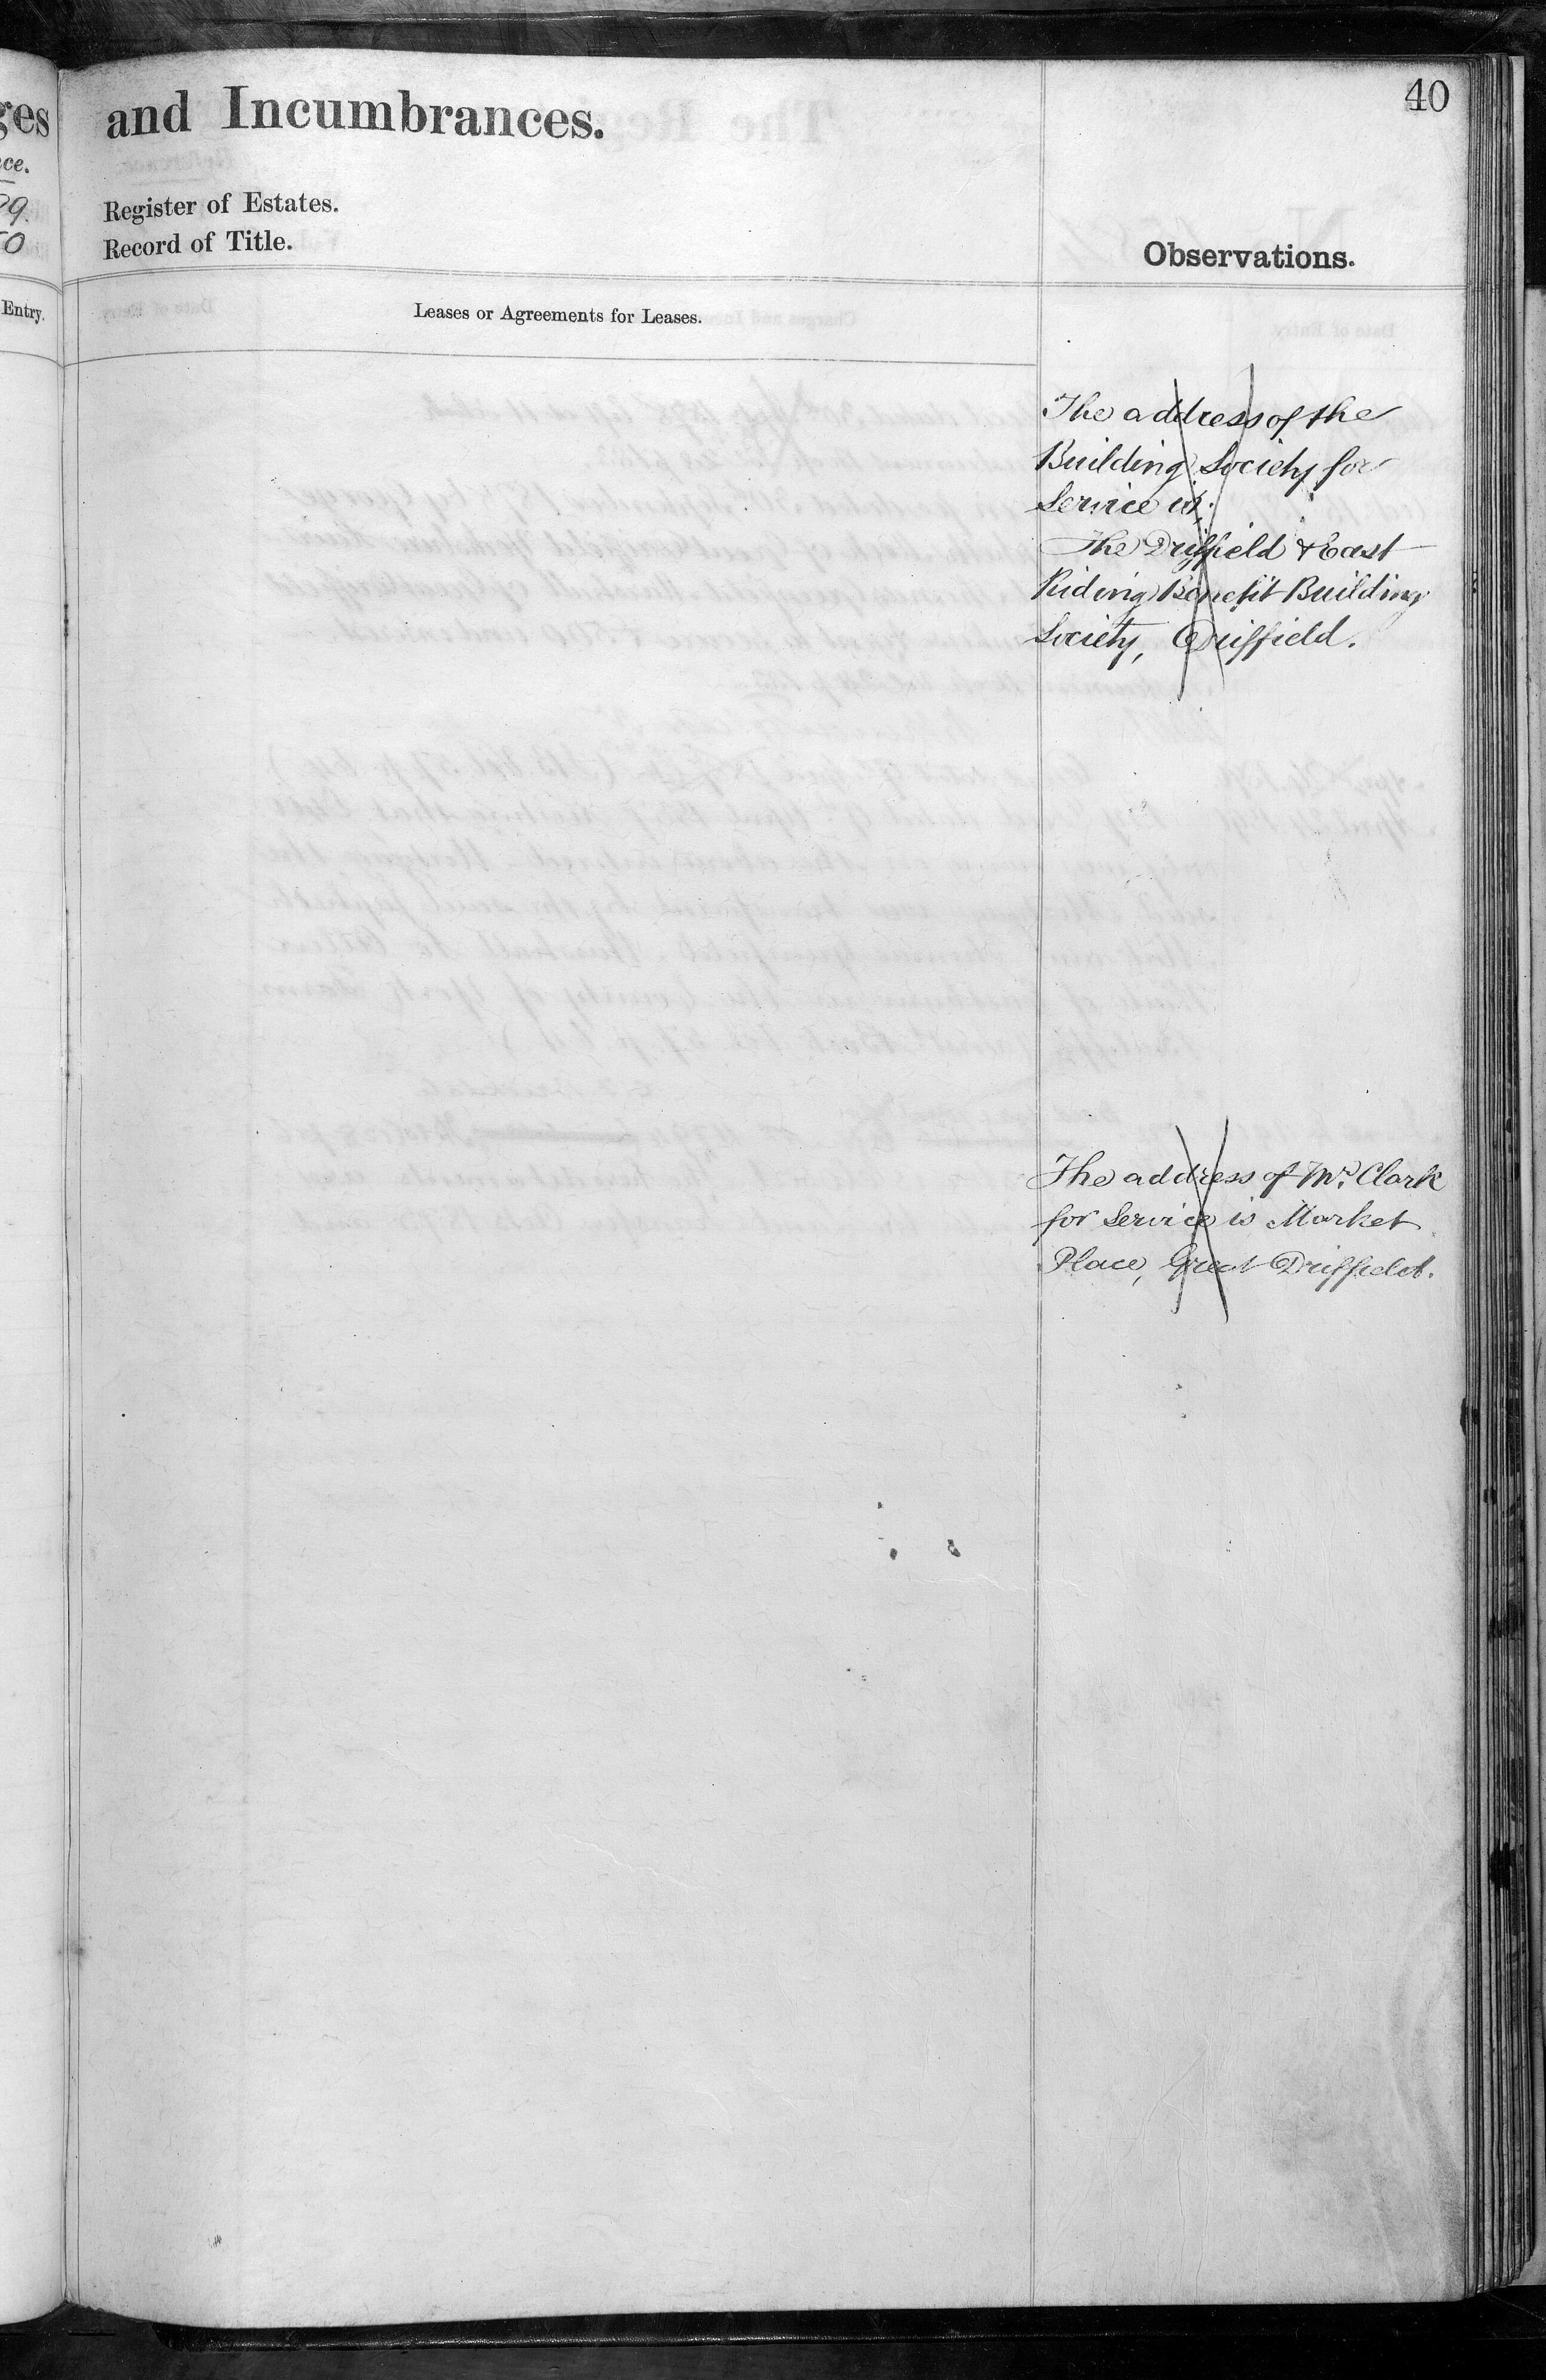 40
ges
and Incumbrances.
ce.
Register of Estates.
Record of Title.
Observations.
Entry.
Leases or Agreements for Leases.
The address of the
Building Society for
Service is;
The Driffield & East
Riding Benefit Building
Society, Driffield.
The address of Mr. Clark
for Service is Market
Place, Great Driffield.